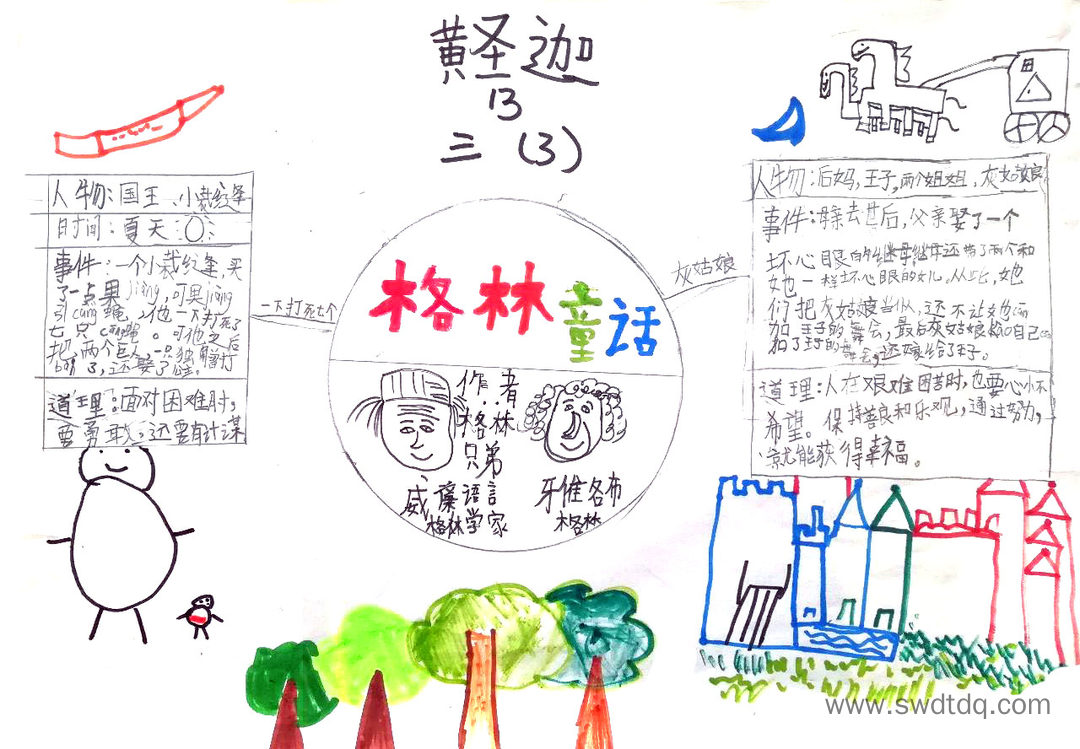 黄圣迦
13
三（3）
人物：国王、小裁缝
时间：夏天
事件：一个小裁缝，买
了一点果jiang，可果jiang
引cang蝇，他一下打死了
七只cang蝇。可他之后
把两个巨人、一只独角兽打
了，还娶了
道理：面对困难时，
要勇敢，还要有计谋
一下打死七个
格林童话
作者
格林
兄弟
威廉
格林
语言
学家
牙惟各布
格林
灰姑娘
人物：后妈，王子，两个姐姐，灰姑娘
事件：去世后，父亲娶了一个
坏心眼的继母继母还带了两个和
她一样坏心眼的女儿。从此，她
们把灰姑娘当仆人，还不让她can
加王子的舞会，最后灰姑娘自己can
加了王子的舞会，还嫁给了王子。
道理：人在艰难困苦时，也要心怀
希望。保持善良和乐观，通过努力，
就能获得幸福。
www.swdtdq.com